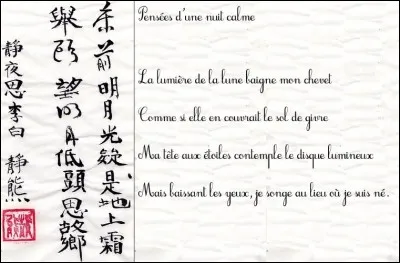 床前明月光疑是地上霜
舉頭望明月低頭思故鄉
靜夜思李白 靜熊
Pensées d'une nuit calme
La lumière de la lune baigne mon chevet
Comme si elle en couvrait le sol de givre
Ma tête aux étoiles contemple le disque lumineux
Mais baissant les yeux, je songe au lieu où je suis né.